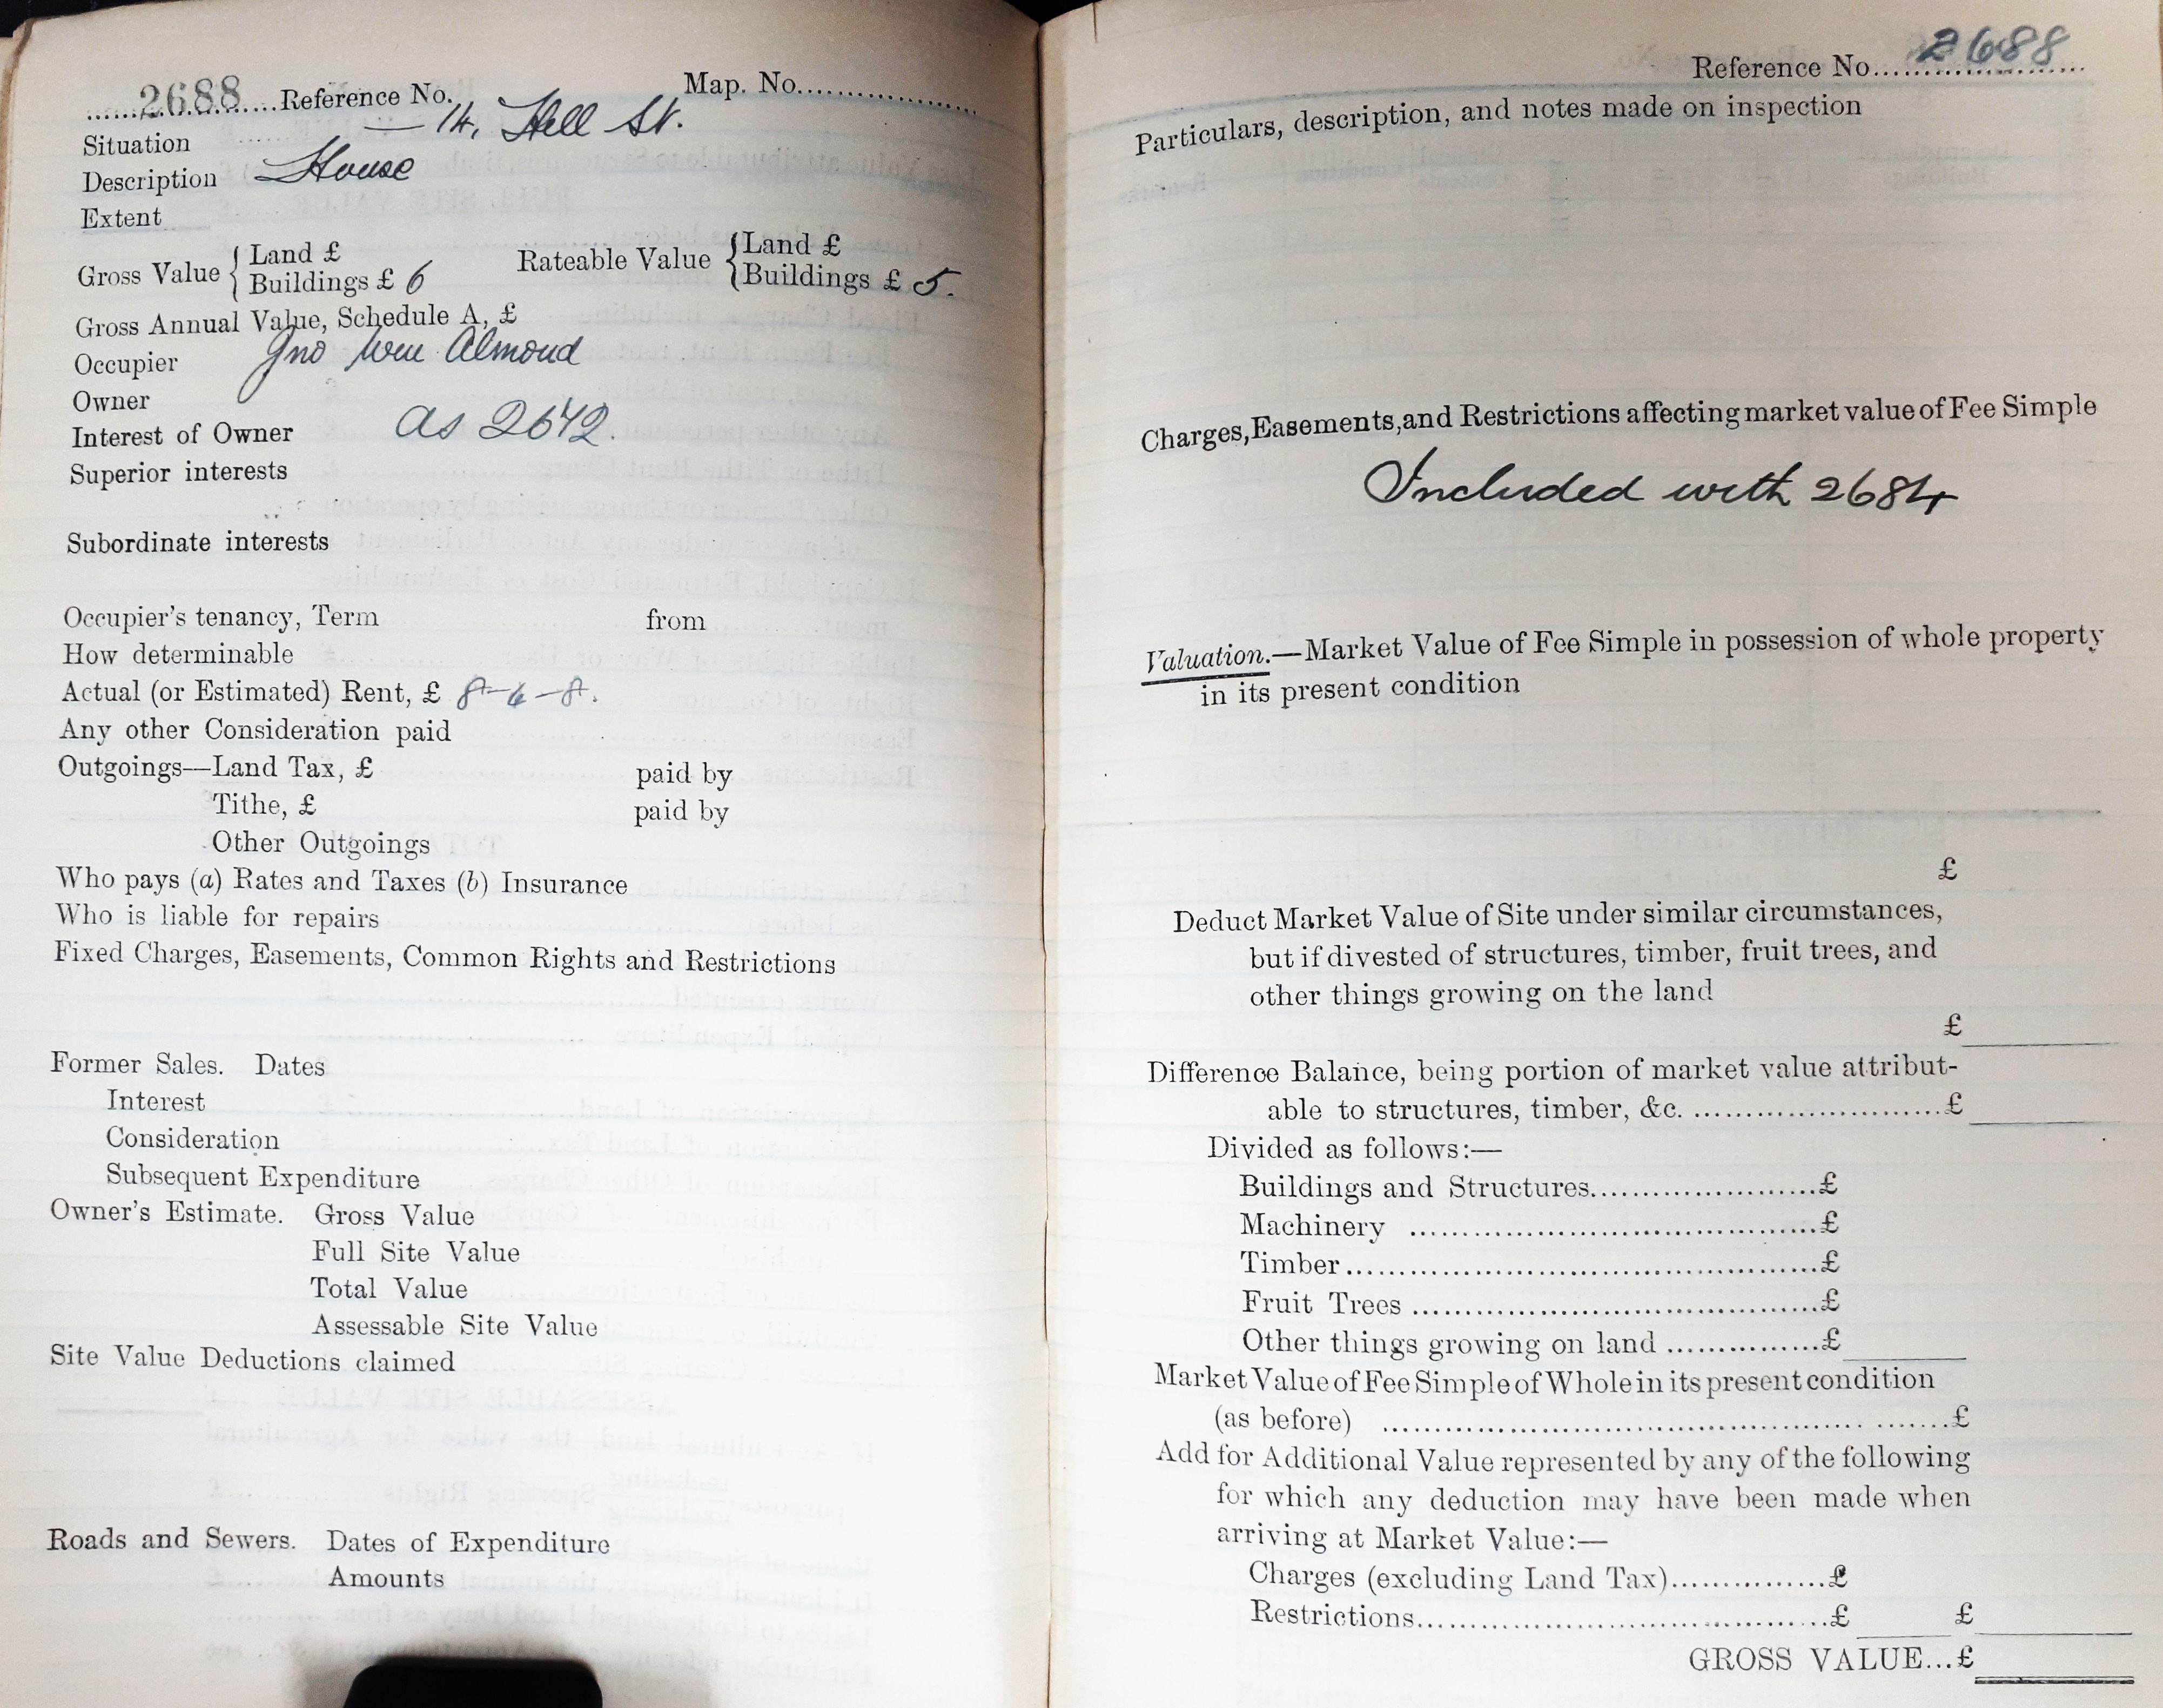 2688 Reference No. Map. No.
Situation — 14, Hell St.
Description House
Extent
Gross Value { Land £ Rateable Value { Land £
Buildings £ 6 Buildings £ 5.
Gross Annual Value, Schedule A, £
Occupier Jno Wm Almond
Owner
Interest of Owner as 2642.
Superior interests
Subordinate interests
Occupier's tenancy, Term from
How determinable
Actual (or Estimated) Rent, £ 8-6-8.
Any other Consideration paid
Outgoings—Land Tax, £ paid by
Tithe, £ paid by
Other Outgoings
Who pays (a) Rates and Taxes (b) Insurance
Who is liable for repairs
Fixed Charges, Easements, Common Rights and Restrictions
Former Sales. Dates
Interest
Consideration
Subsequent Expenditure
Owner's Estimate. Gross Value
Full Site Value
Total Value
Assessable Site Value
Site Value Deductions claimed
Roads and Sewers. Dates of Expenditure
Amounts
Reference No. 2688
Particulars, description, and notes made on inspection
Charges, Easements, and Restrictions affecting market value of Fee Simple
Included with 2684
Valuation.—Market Value of Fee Simple in possession of whole property
in its present condition
£
Deduct Market Value of Site under similar circumstances,
but if divested of structures, timber, fruit trees, and
other things growing on the land
£
Difference Balance, being portion of market value attribut-
able to structures, timber, &c. £
Divided as follows:—
Buildings and Structures £
Machinery £
Timber £
Fruit Trees £
Other things growing on land £
Market Value of Fee Simple of Whole in its present condition
(as before) £
Add for Additional Value represented by any of the following
for which any deduction may have been made when
arriving at Market Value:—
Charges (excluding Land Tax) £
Restrictions £ £
GROSS VALUE... £